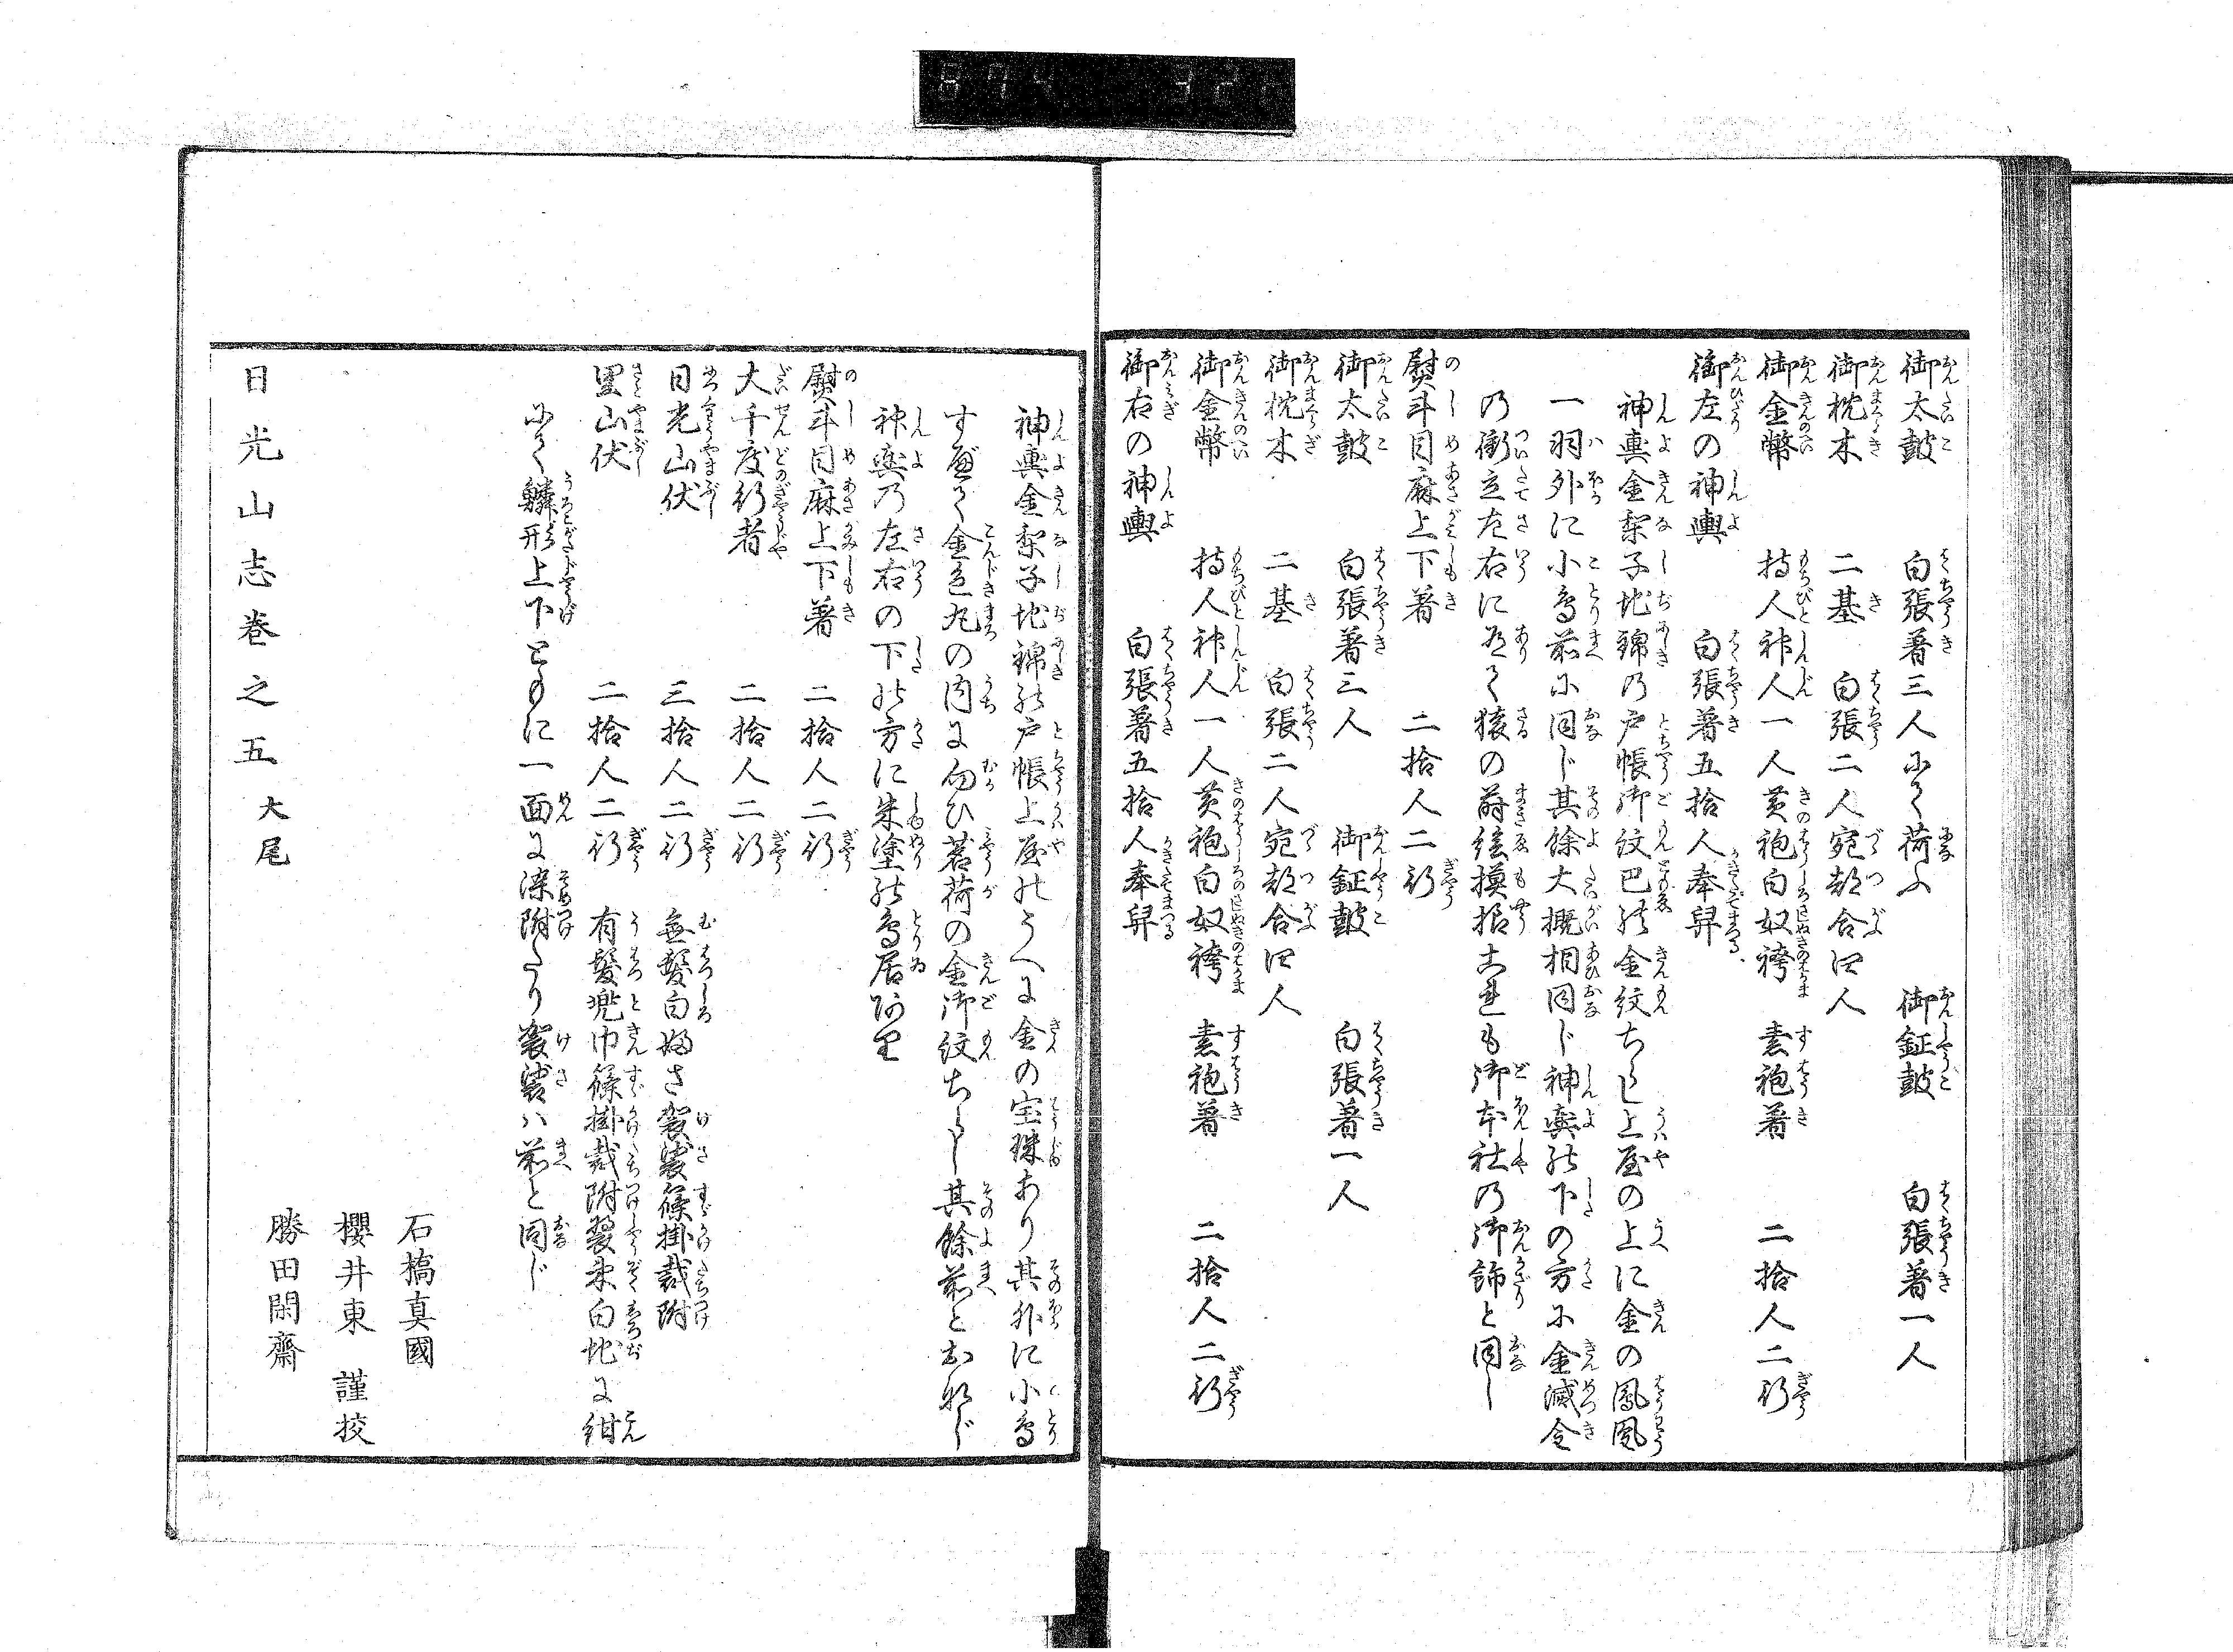 御太鼓　白張著三人にて荷ふ　御鉦鼓　白張著一人
御枕木　二基　白張二人宛都合四人
御金幣　持人神人一人黄袍白奴袴　素袍著　二拾人二行
御左の神輿　白張著五拾人奉舁
神輿金梨子地錦の戸帳御紋巴の金紋ちらし上屋の上に金の鳳凰
一羽外に小鳥前に同じ其餘大概相同じ神輿の下の方に金滅金
の衝立左右に有て猿の蒔絵模様これも御本社の御飾と同し
熨斗目麻上下著　二拾人二行
御太鼓　白張著三人　御鉦鼓　白張著一人
御枕木　二基　白張二人宛都合四人
御金幣　持人神人一人黄袍白奴袴　素袍著　二拾人二行
御右の神輿　白張著五拾人奉舁
神輿金梨子地錦の戸帳上屋のうへに金の宝珠あり其外に小鳥
すべて金色丸の内に向ひ茗荷の金御紋ちらし其餘前とおなじ
神輿の左右の下の方に朱塗の鳥居あり
熨斗目麻上下著　二拾人二行
大千度行者　二拾人二行
日光山伏　三拾人二行　無髪白
袈裟篠掛裁附
里山伏　二拾人二行　有髪兜巾篠掛裁附装束白地に紺
にて鱗形上下ともに一面に染附たり袈裟は前と同じ
石橋真國
櫻井東　謹挍
勝田閑齋
日光山志巻之五大尾